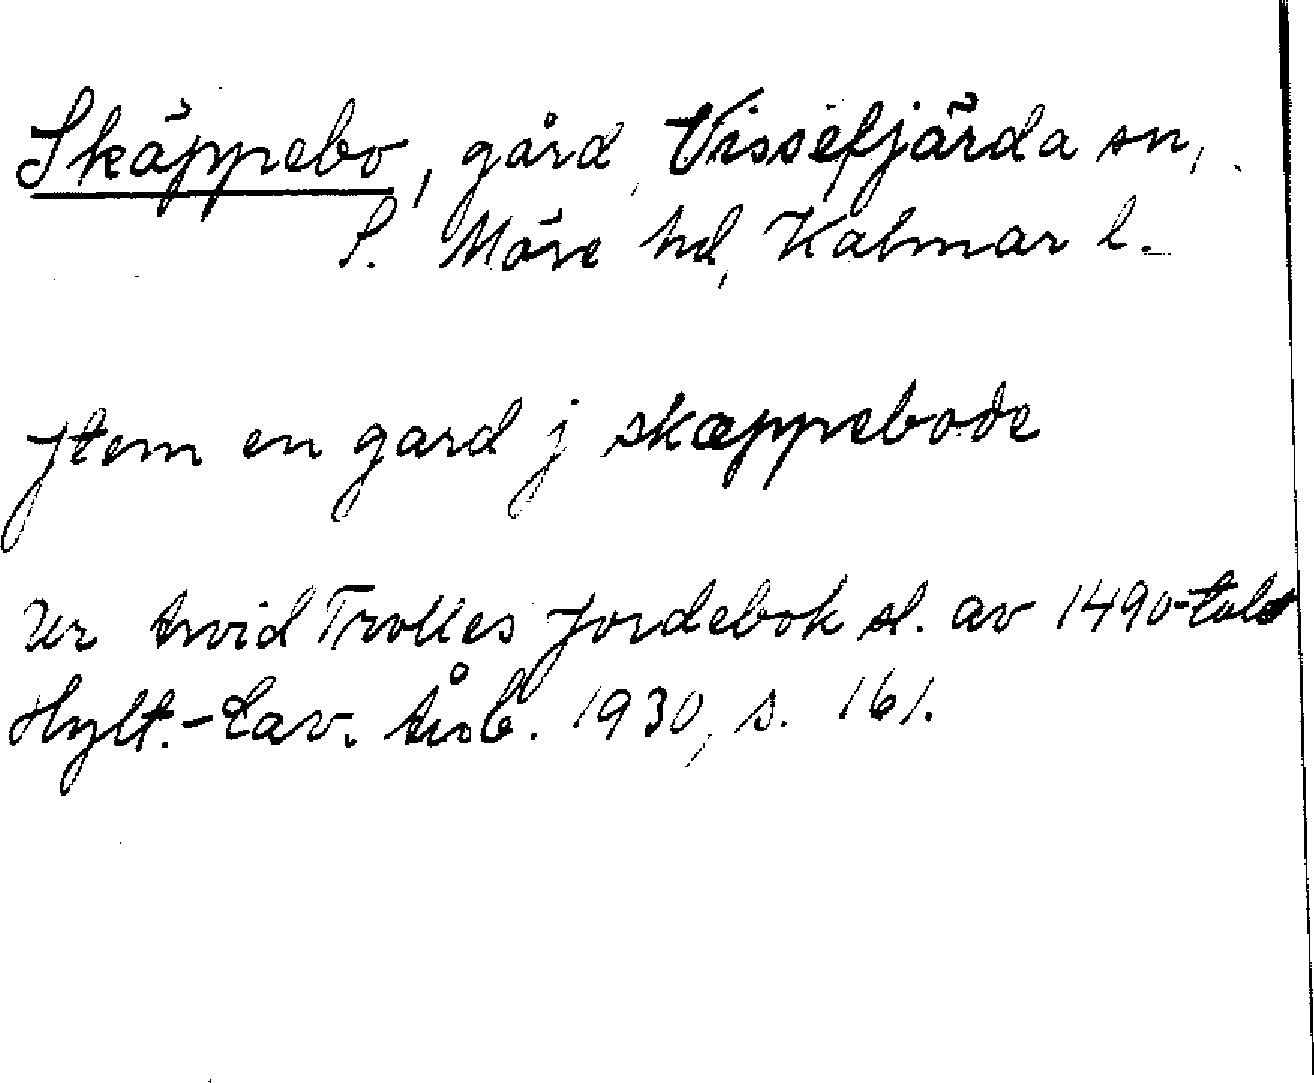 Skäppebo, gård, Vissefjärda sn,
S. Möre hd, Kalmar l.
Jtem en gard j skæppebode
Ur Arvid Trolles Jordebok sl. av 1490-talet
Hylt.-Cav. Årsb. 1930, s. 161.